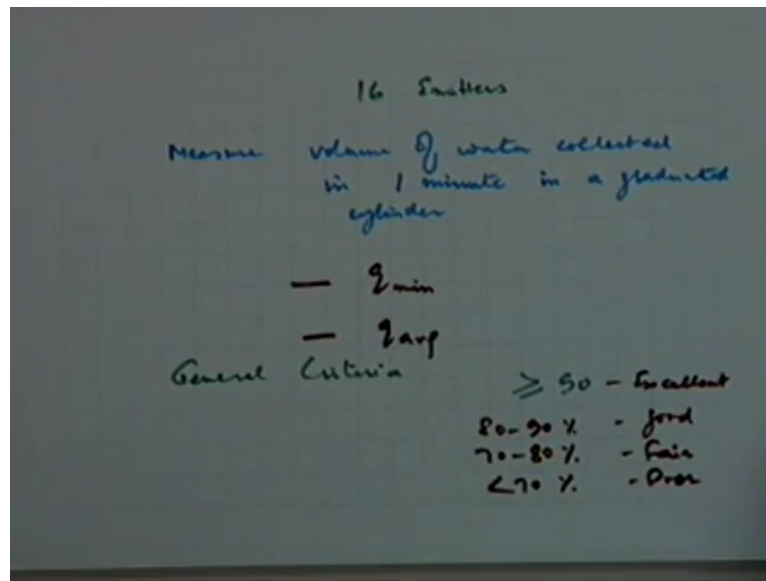 16 Emitters
Measure volume of water collected
in 1 minute in a graduated
cylinder
— qmin
— qavg
General Criteria
≥ 90 - Excellent
80-90 % - Good
70-80 % - Fair
<70 % - Poor